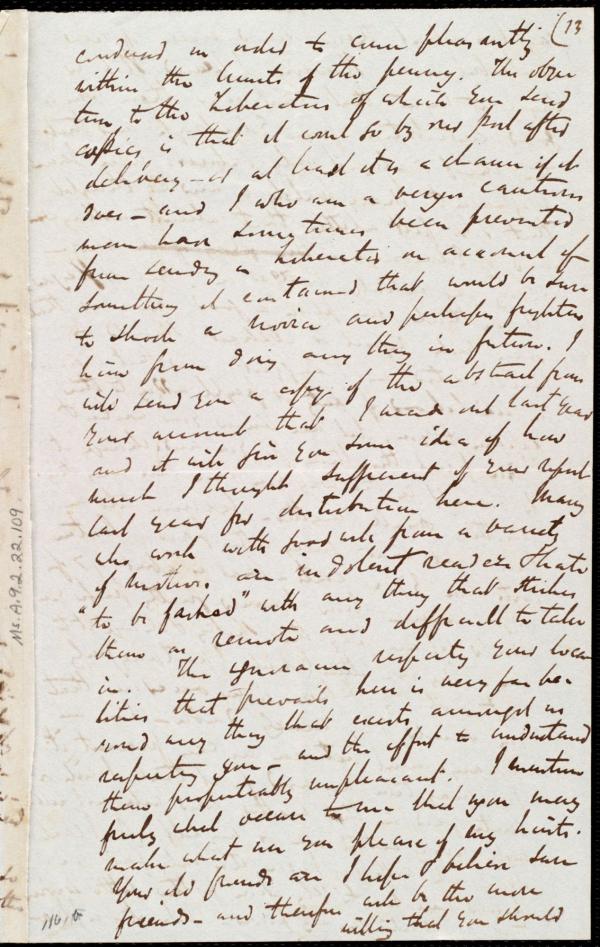 (13
condensed in order to come pleasantly
within the limits of the penny. The objec
tion to the Liberators of which you send
copies is that it cost so by our Post after
delivery – or at least it is a chance if it
does – and I who am a very cautious
man have sometimes been prevented
from sending a Liberator on account of
something it contained that would be sure
to shock a novice and perhaps frighten
him from doing any thing in future. I
will send you a copy of the abstract from
your account that I made out last year
and it will give you some idea of how
much I thought sufficient of your report
last year for distribution here. Many
who work with good will from a variety
of motives, are indolent readers & hate
"to be fashed" with any thing that strikes
them as remote and difficult to take
in. The ignorance respecting your loca
lities that prevails here is very far be-
yond any thing that exists amongst us
respecting you – and the effort to understand
them proportionably unpleasant. I mention
freely what occurs to me that you may
make what use you please of my hints.
Your old friends are I hope & believe sure
friends – and therefore will be the more
willing that you should
Ms. A. 9. 2. 22. 109